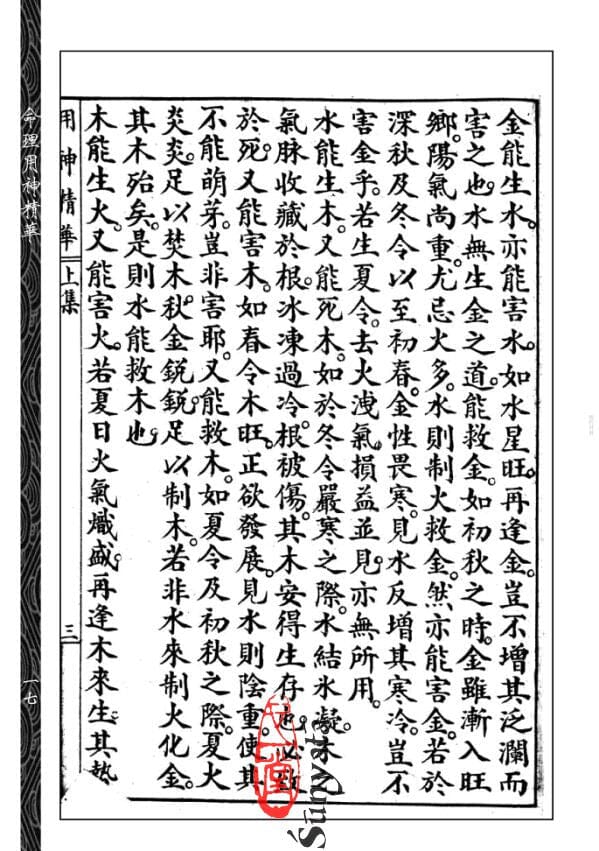 金能生水。亦能害水。如水星旺。再逢金。豈不增其泛瀾而
害之也。水無生金之道。能救金。如初秋之時。金雖漸入旺
鄉。陽氣尚重。尤忌火多。水則制火救金。然亦能害金。若於
深秋及冬令。以至初春。金性畏寒。見水反增其寒冷。豈不
害金乎。若生夏令。去火洩氣。損益並見。亦無所用。
水能生木。又能死木。如於冬令嚴寒之際。水結氷凝。木之
氣脉收藏於根。冰凍過冷。根被傷。其木安得生存也。必致
於死。又能害木。如春令木旺。正欲發展。見水則陰重。使其
不能萌芽。豈非害耶。又能救木。如夏令及初秋之際。夏火
炎炎。足以焚木。秋金鋭鋭。足以制木。若非水來制火化金。
其木殆矣。是則水能救木也。
木能生火。又能害火。若夏日火氣熾盛。再逢木來生。其勢
用神精華 上集 三
命理用神精華
一七
心一堂
Śūnyatā